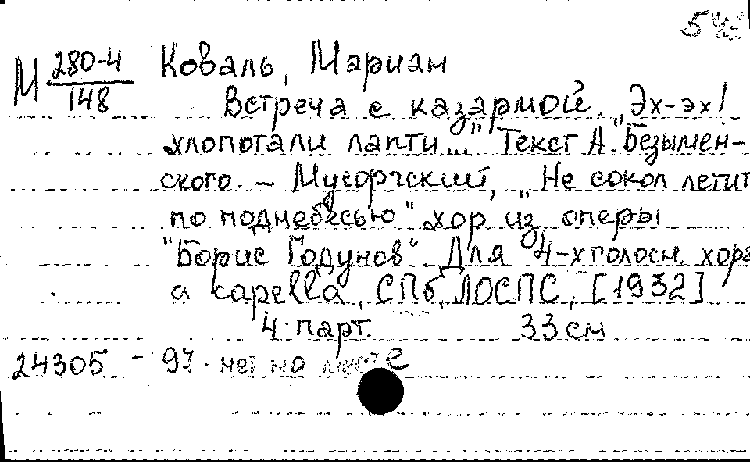 М 280-4/148 Коваль, Мариан
Встреча с казармой. „Эх-эх!
хлопотали лапти..." Текст А. Безымен-
ского. – Мусоргский, „Не сокол летит
по поднебесью" хор из оперы
"Борис Годунов". Для 4-х голосн. хора
a capella, СПб, ЛОСПС, [1932]
4 парт. 33 см
24305 – 97. нет на месте